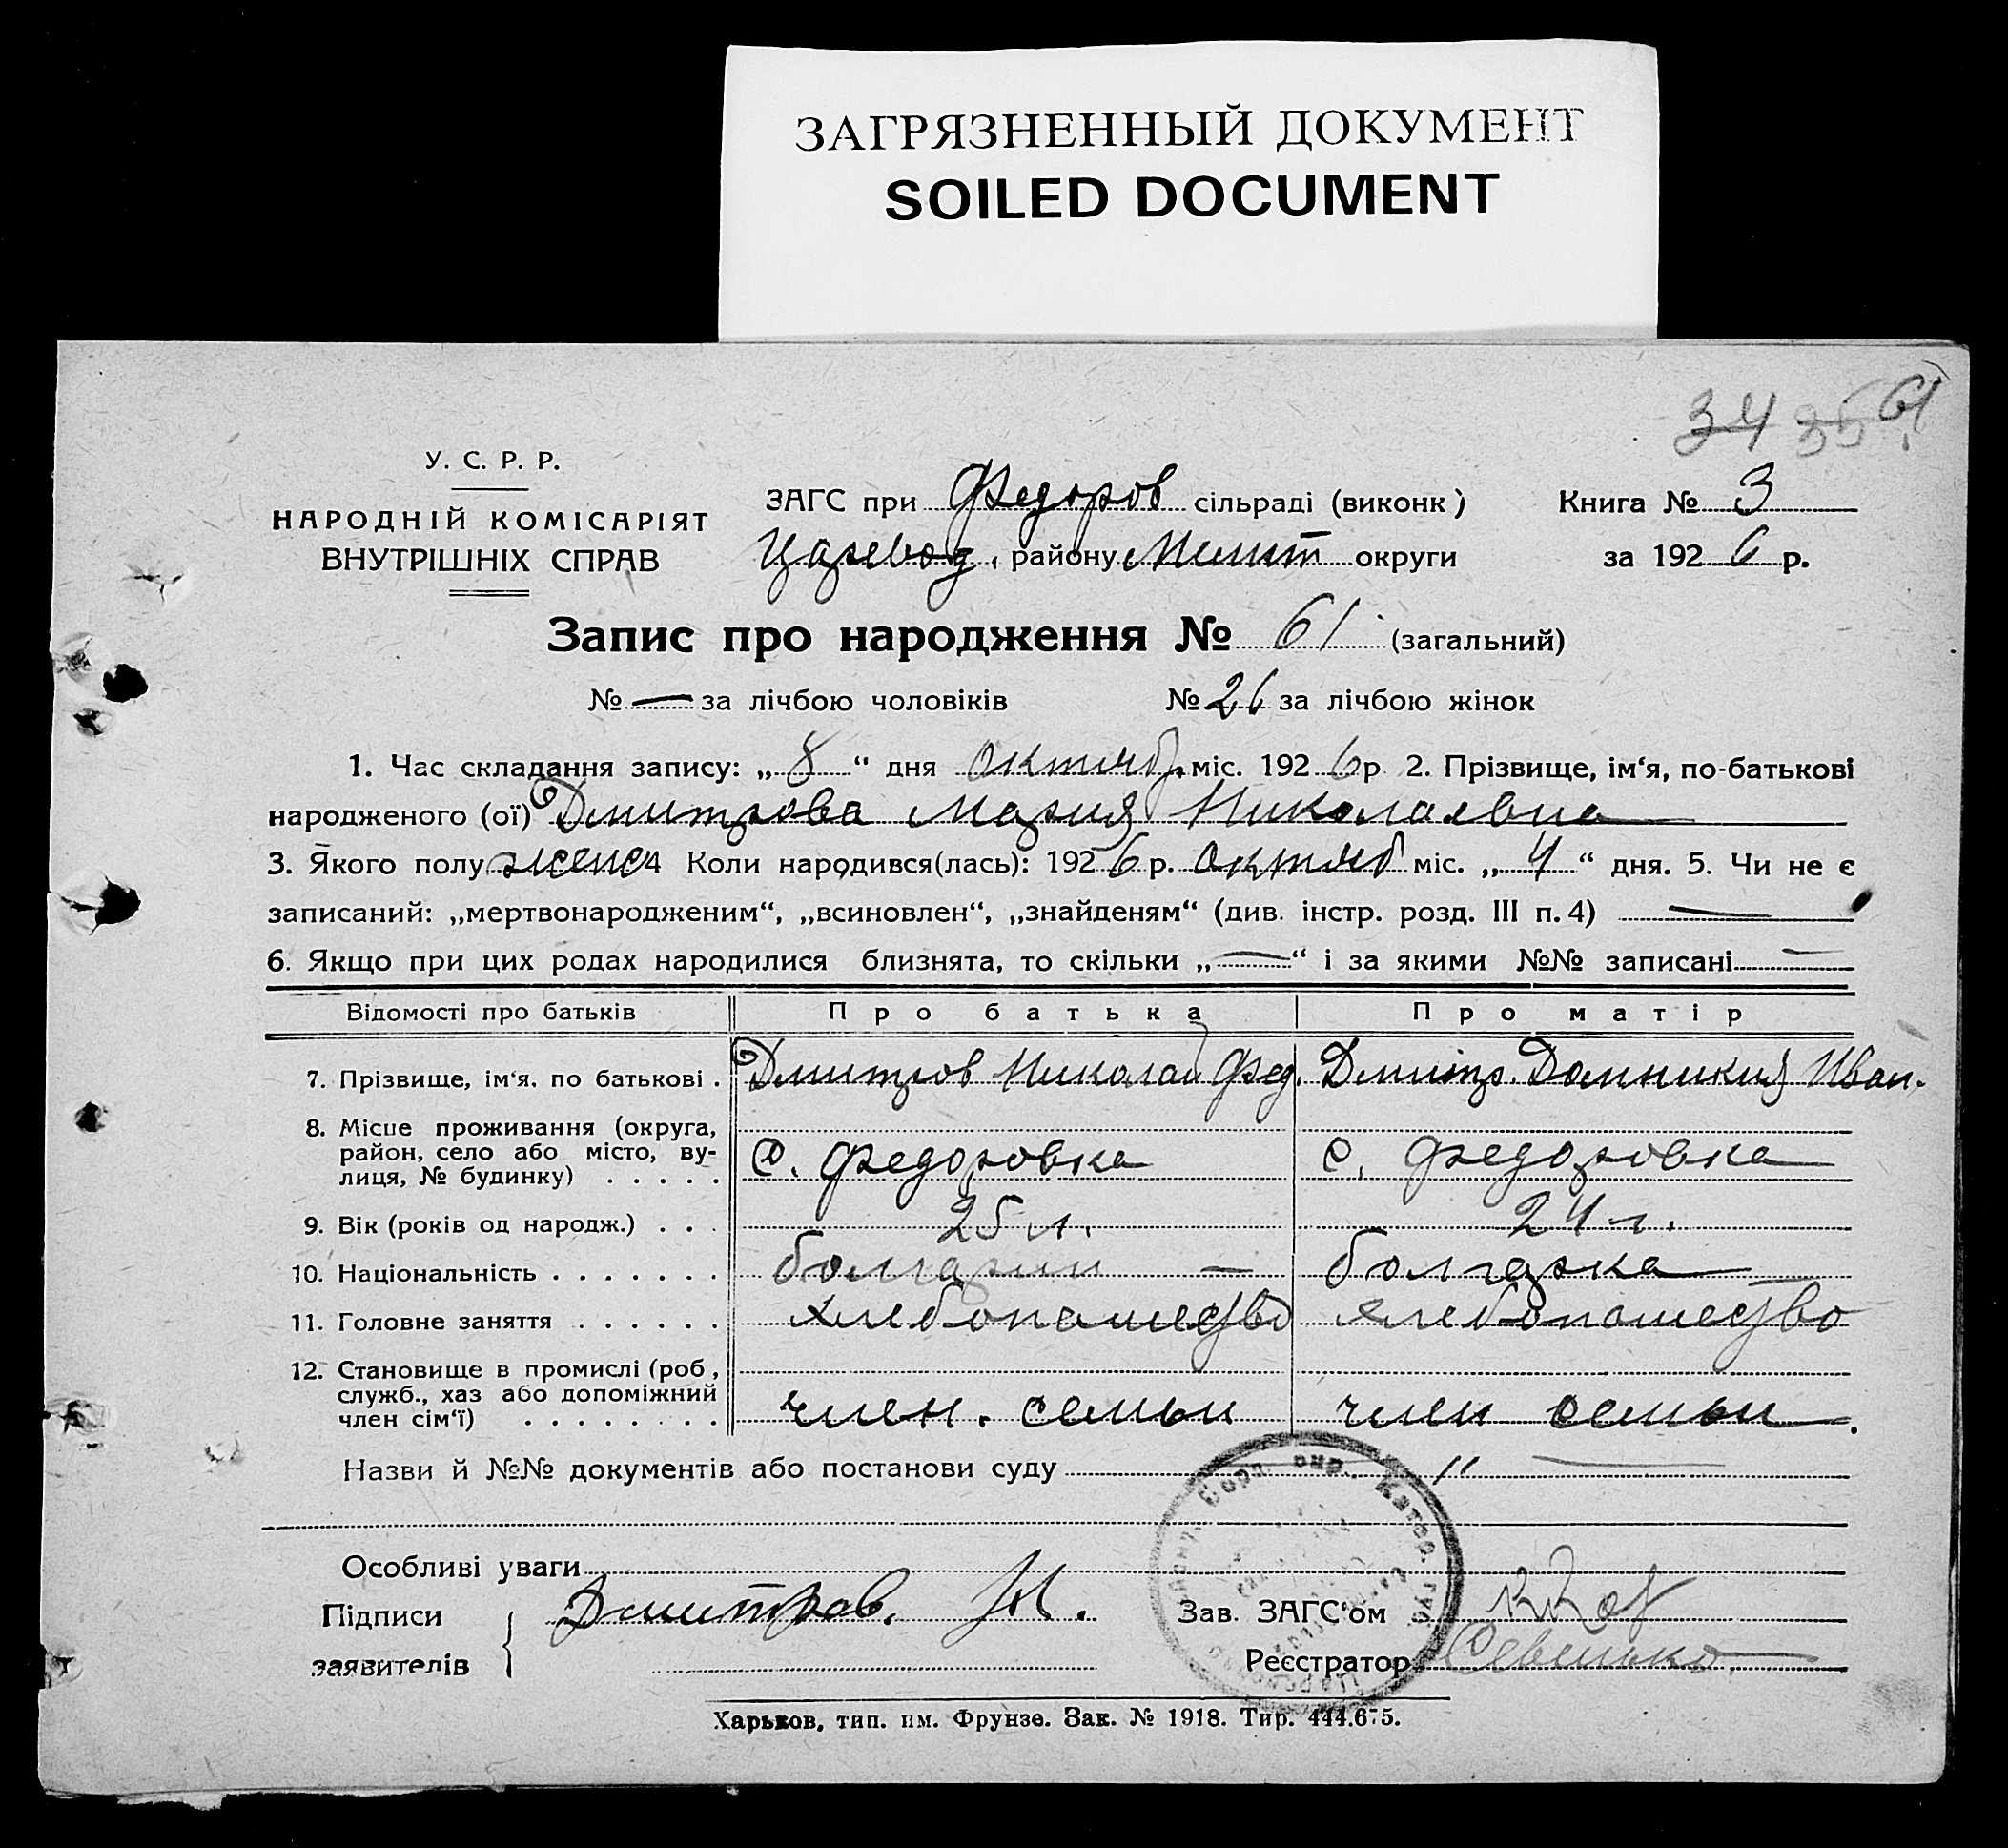 ЗАГРЯЗНЕННЫЙ ДОКУМЕНТ
SOILED DOCUMENT
34 35 61
У. С. Р. Р.
НАРОДНІЙ КОМІСАРІЯТ
ВНУТРІШНІХ СПРАВ
ЗАГС при Федоров сільраді (виконк) Книга № 3
Царевод, району Мелит округи за 1926 р.
Запис про народження № 61 (загальний)
№ — за лічбою чоловіків № 26 за лічбою жінок
1. Час складання запису: „ 8 “ дня октяб. міс. 1926 р 2. Прізвище, ім‘я, по-батькові
народженого (ої) Дмитрова Мария Николаевна
3. Якого полу женс 4 Коли народився(лась): 1926 р. октяб міс. „ 4 “ дня. 5. Чи не є
записаний: „мертвонародженим“, „всиновлен“, „знайденям“ (див. інстр. розд. III п. 4) —
6. Якщо при цих родах народилися близнята, то скільки „ — “ і за якими №№ записані —
Відомості про батьків Про батька Про матір
7. Прізвище, ім‘я. по батькові . Дмитров Николай Фед. Дмитр. Домникия Иван.
8. Місце проживання (округа,
район, село або місто, ву-
лиця, № будинку) . . . . . с. Федоровка с. Федоровка
9. Вік (років од народж.) . . . 25 л. 24 л.
10. Національність . . . . . . . болгарин — болгарка
11. Головне заняття . . . . . . хлебопашество хлебопашество
12. Становище в промислі (роб,
служб., хаз або допоміжний
член сім‘ї) . . . . . . . . член. семьи член семьи.
Назви й №№ документів або постанови суду " —
Особливі уваги
Підписи Дмитров. Н. Зав. ЗАГС‘ом
заявителів Реєстратор
Харьков, тип. им. Фрунзе. Зак. № 1918. Тир. 444.675.